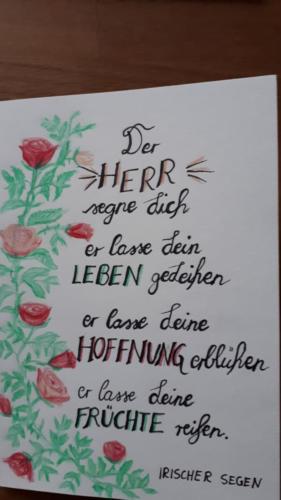 Der
HERR
segne dich
er lasse dein
LEBEN gedeihen
er lasse deine
HOFFNUNG erblühen
er lasse deine
FRÜCHTE reifen.
IRISCHER SEGEN